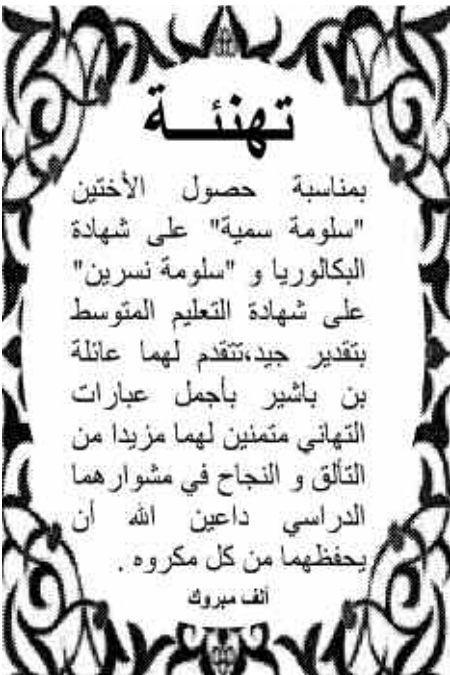 تهنئــة
بمناسبة حصول الأختين
"سلومة سمية" على شهادة
البكالوريا و "سلومة نسرين"
على شهادة التعليم المتوسط
بتقدير جيد،تتقدم لهما عائلة
بن باشير بأجمل عبارات
التهاني متمنين لهما مزيدا من
التألق و النجاح في مشوارهما
الدراسي داعين الله أن
يحفظهما من كل مكروه .
ألف مبروك